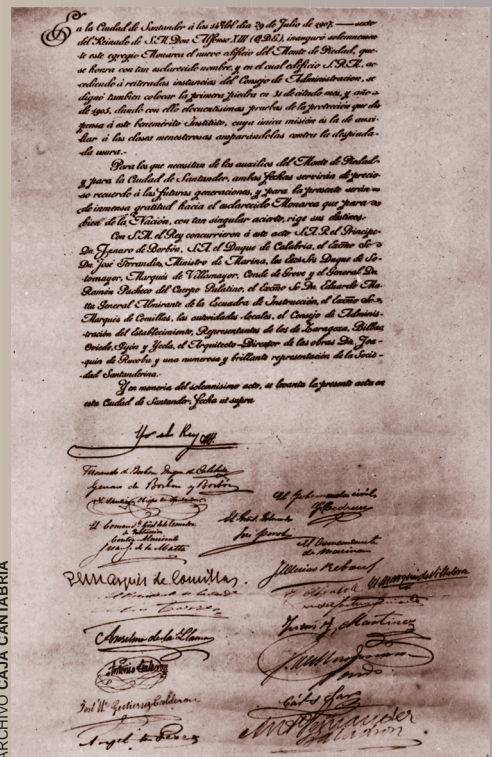 En la Ciudad de Santander á las 14 del día 29 de Julio de 1907. — sexto
del Reinado de S.M. Don Alfonso XIII (Q.D.G.), inauguró solemnemen-
te este egregio Monarca el nuevo edificio del Monte de Piedad, que
se honra con tan esclarecido nombre, y en el cual edificio S.R.M. ac-
cediendo á reiteradas instancias del Consejo de Administracion, se
dignó tambien colocar la primera piedra en 31 de citado mes, y año
de 1905, dando con ello elocuentísimas pruebas de la protección que dis-
pensa á este benemérito Instituto, cuya única misión es la de auxi-
liar á las clases menesterosas amparándolas contra la despiada-
da usura.-
Para los que necesitan de los auxilios del Monte de Piedad-
y para la Ciudad de Santander, ambas fechas servirán de precio-
so recuerdo á las futuras generaciones, y para la presente serán
de inmensa gratitud hacia el esclarecido Monarca que para
bien de la Nación, con tan singular acierto, rige sus destinos.
Con S.M. el Rey concurrieron á este acto S.A.R. el Príncipe-
Dn. Jenaro de Borbón, S.A. el Duque de Calabria, el Excmo Sr
Dn. José Ferrandiz, Ministro de Marina, los Excs Srs Duque de So-
tomayor, Marqués de Villamayor, Conde de Grove y el General Dn.
Ramón Pacheco del Cuerpo Palatino, el Excmo Sr Dn. Eduardo Ma-
tta General Almirante de la Escuadra de Instrucción, el Excmo Sr
Marqués de Comillas, las autoridades locales, el Consejo de Adminis-
tración del Establecimiento, Representantes de los de Zaragoza, Bilbao,
Oviedo, Gijón y Yecla, el Arquitecto-Director de las obras Dn. Joa-
quin de Rucoba y una numerosa y brillante representación de la Socie-
dad Santanderina.
Y en memoria del solemnísimo acto, se levanta la presente acta en
esta Ciudad de Santander, fecha ut supra
Yo el Rey
Fernando de Borbon Duque de Calabria
Genaro de Borbon y Borbón
El Marqués de Comillas.
El Comandante
de Marina
Anselmo de la Llama
Antonio
Martinez
José Mª Gutierrez Calderon
Angel
Fernandez
ARCHIVO CAJA CANTABRIA